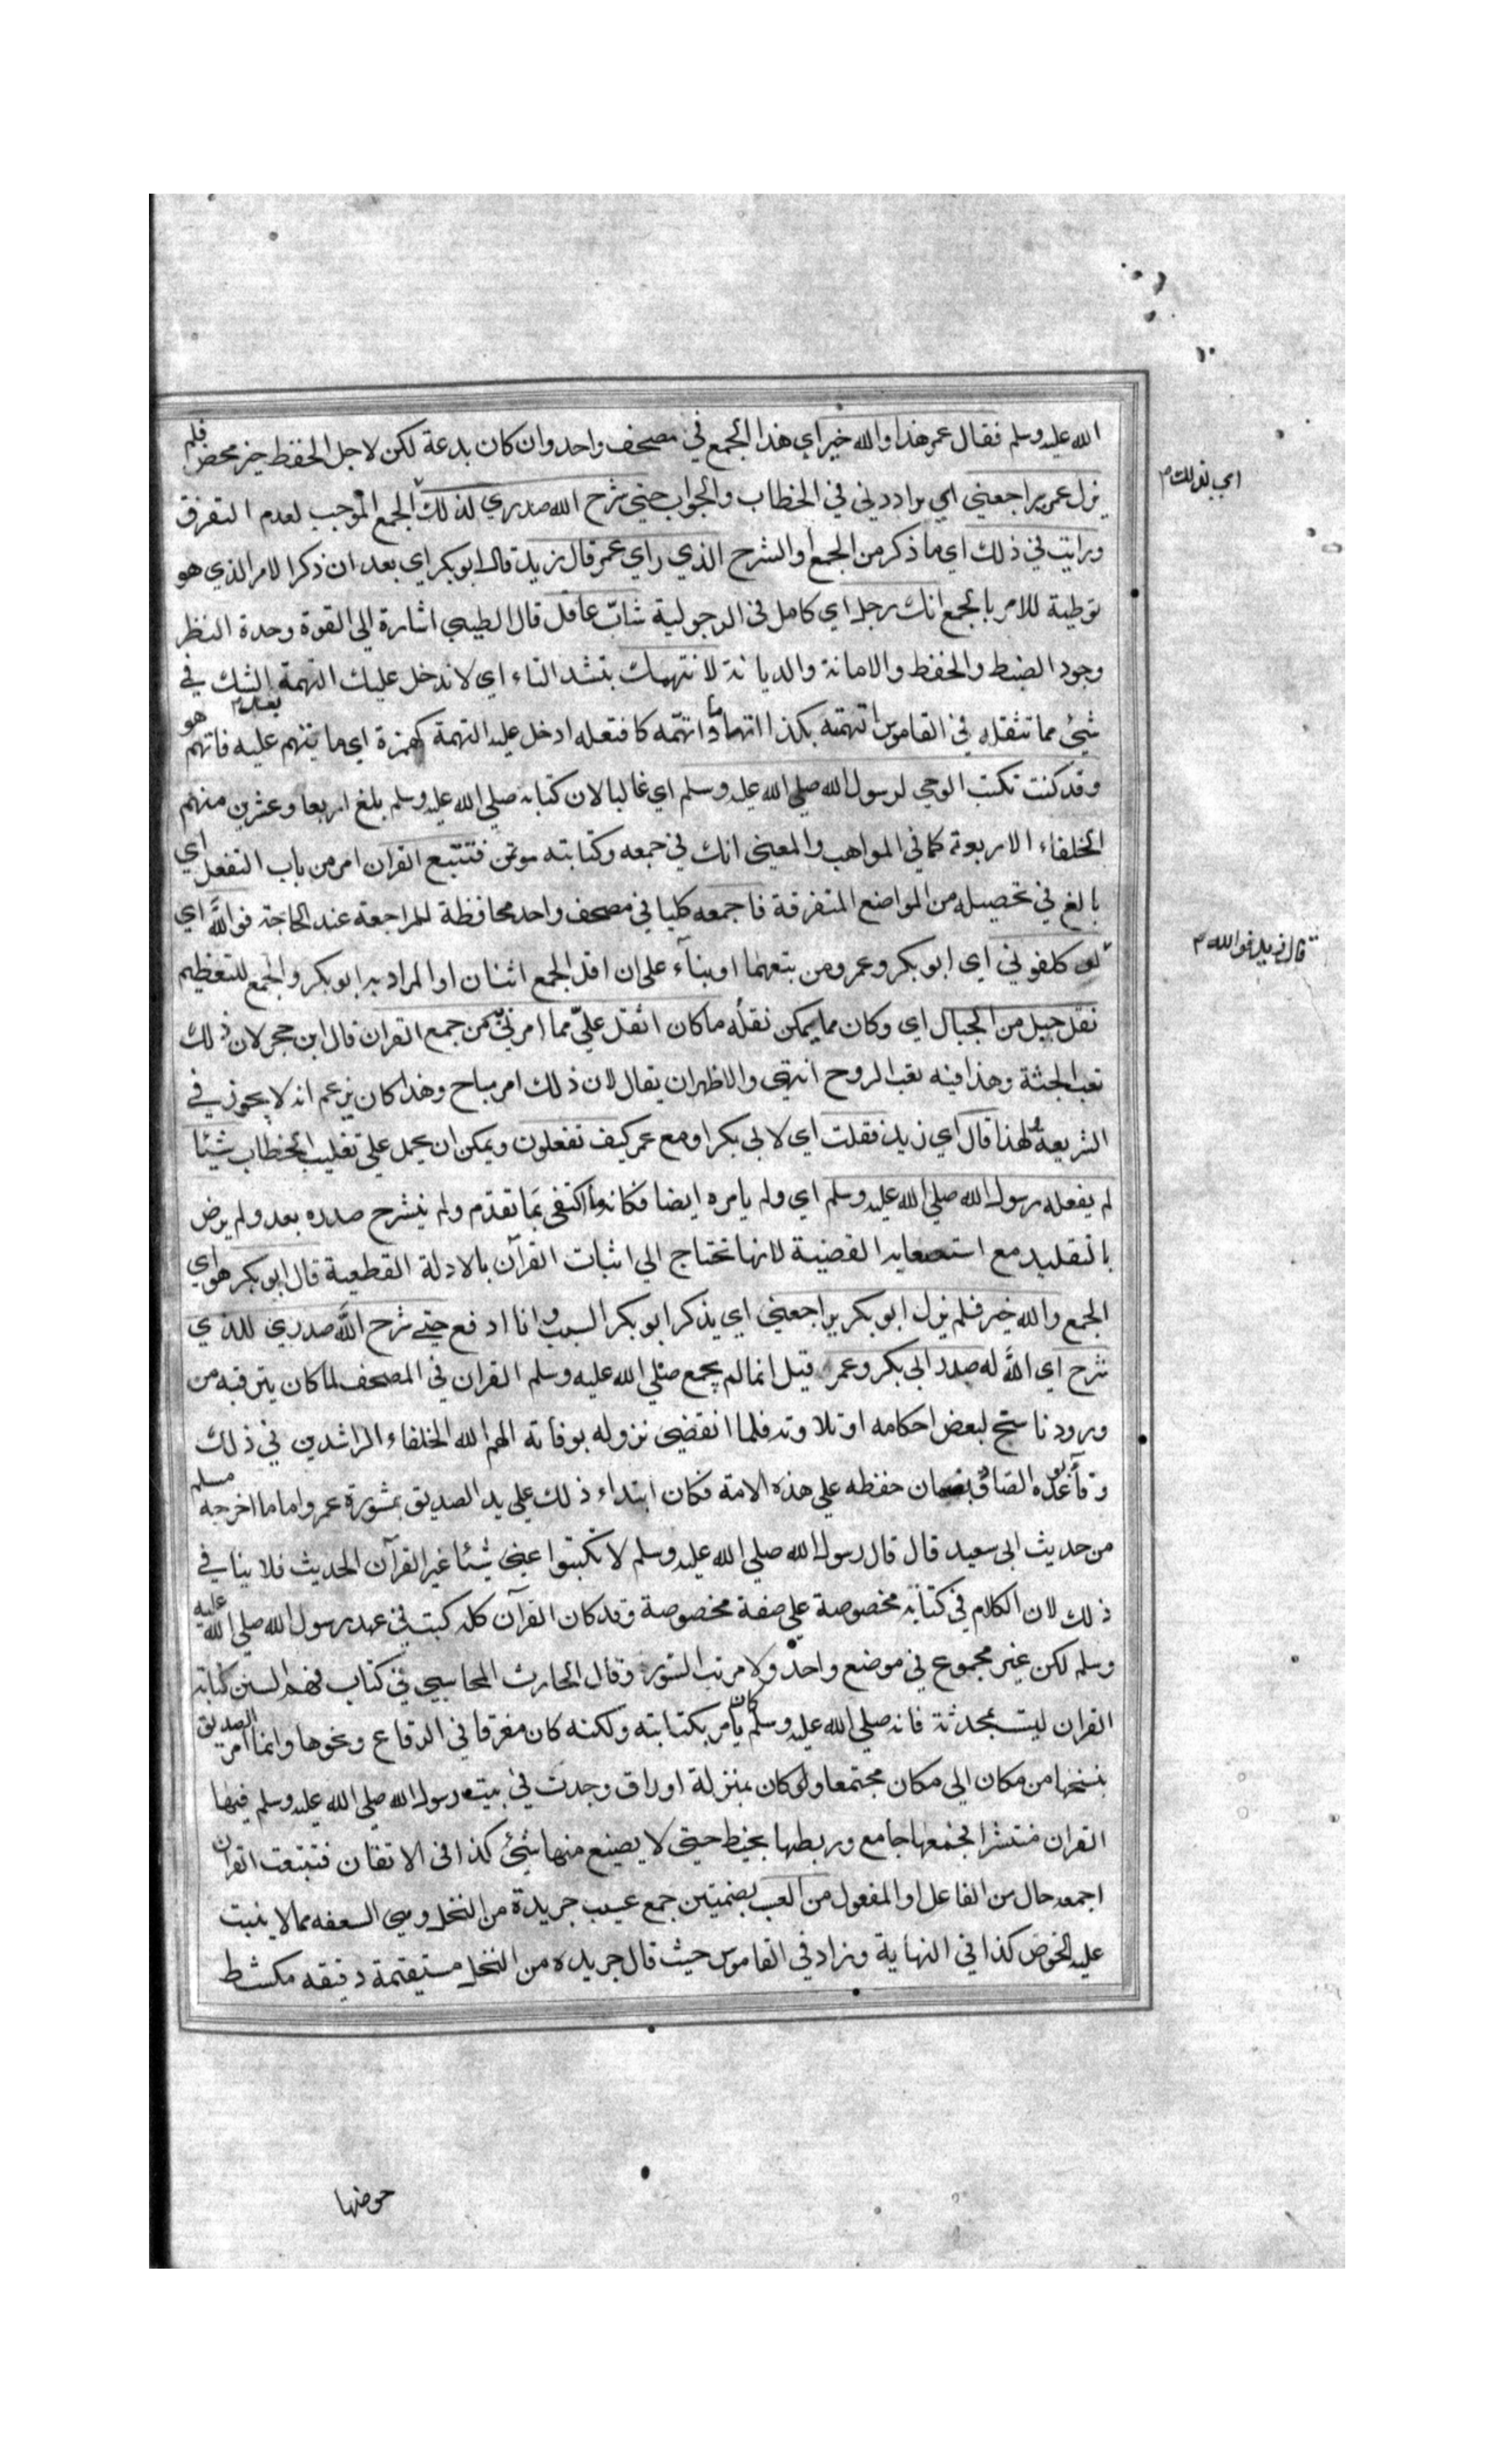 الله عليه وسلم فقال عمر هذا والله خير اي هذا الجمع في مصحف واحد وان كان بدعة لكن لاجل الحفظ خير محض فلم
يزل عمر يراجعني اي يراددني في الخطاب والجواب حتي شرح الله صدري لذلك الجمع الموجب لعدم التفرق
اي بذلك
ورايت في ذلك اي ما ذكر من الجمع او الشرح الذي راي عمر قال زيد قال ابو بكر اي بعد ان ذكر الامر الذي هو
توطية للامر بالجمع انك رجل اي كامل في الرجولية شابّ عاقل قال الطيبي اشارة الي القوة وحدة النظر
وجود الضبط والحفظ والامانة والديانة لا نتهمك بتشد التاء اي لا ندخل عليك التهمة الشك في
شيئ مما تنقله في القاموس اتهمته بكذا اتهاما واتهمه كافتعله ادخل عليه التهمة كهمزة اي ما يتهم عليه فاتهم هو
وقد كنت تكتب الوحي لرسول الله صلي الله عليه وسلم اي غالبا لان كتابه صلي الله عليه وسلم بلغ اربعا وعشرين منهم
الخلفاء الاربعة كما في المواهب والمعني انك في جمعه وكتابته موتمن فتتبع القران امر من باب التفعل اي
بالغ في تحصيله من المواضع المتفرقة فاجمعه كليا في مصحف واحد محافظة للمراجعة عند الحاجة فواللّه اي
قال زيد فوالله
لو كلفوني اي ابو بكر وعمر ومن تبعهما او بناء على ان اقل الجمع اثنان او المراد به ابو بكر والجمع للتعظيم
نقل جبل من الجبال اي وكان مما يمكن نقله ما كان اثقل عليّ مما امرني من جمع القران قال ابن حجر لان ذلك
تعب الجثة وهذا فيه تعب الروح انتهي والاظهر ان يقال لان ذلك امر مباح وهذا كان يزعم انه لا يجوز في
الشريعة ولهذا قال اي زيد فقلت اي لابي بكر او مع عمر كيف تفعلون ويمكن ان يحمل علي تغليب الخطاب شيئا
لم يفعله رسول الله صلي الله عليه وسلم اي ولم يامره ايضا فكانه ما اكتفي بما تقدم ولم ينشرح صدره بعد ولم يرض
بالتقليد مع القضية لانها تحتاج الي اثبات القرآن بالادلة القطعية قال ابو بكر هو اي
الجمع والله خير فلم يزل ابو بكر يراجعني اي يذكر ابو بكر السبب وانا ادفع حتي شرح اللّه صدري للذي
شرح اي اللّه له صدر ابي بكر وعمر قيل انما لم يجمع صلي الله عليه وسلم القران في المصحف لما كان يترقبه من
ورود ناسخ لبعض احكامه او تلاوته فلما انقضي نزوله بوفاته الهم الله الخلفاء الراشدين في ذلك
الصادق بضمان حفظه علي هذه الامة فكان ابتداء ذلك علي يد الصديق بمشورة عمر واما ما اخرجه مسلم
من حديث ابي سعيد قال قال رسول الله صلي الله عليه وسلم لا تكتبوا عني شيئا غير القرآن الحديث فلا ينافي
ذلك لان الكلام في كتابة مخصوصة علي صفة مخصوصة وقد كان القرآن كله كتب في عهد رسول الله صلي الله عليه
وسلم لكن غير مجموع في موضع واحد ولا مرتب السور وقال الحارث المحاسبي في كتاب فهم السنن كتابة
القران ليست بمحدثة فانه صلي الله عليه وسلم كان يامر بكتابته ولكنه كان مفرقا في الرقاع ونحوها وانما امر الصديق
بنسخها من مكان الي مكان مجتمعا ولو كان بمنزلة اوراق وجدت في بيت رسول الله صلي الله عليه وسلم فيها
القران منتشر الجمعها جامع وربطها بخيط حتي لا يضيع منها شيئ كذا في الاتقان فتتبعت القران
اجمعه حال من الفاعل او المفعول من العسب بضمتين جمع عسيب جريدة من النخل وهي السعفه مما لا ينبت
عليه الخوص كذا في النهاية وزاد في القاموس حيث قال جريده من النخل مستقيمة دقيقه مكشط
خوصها